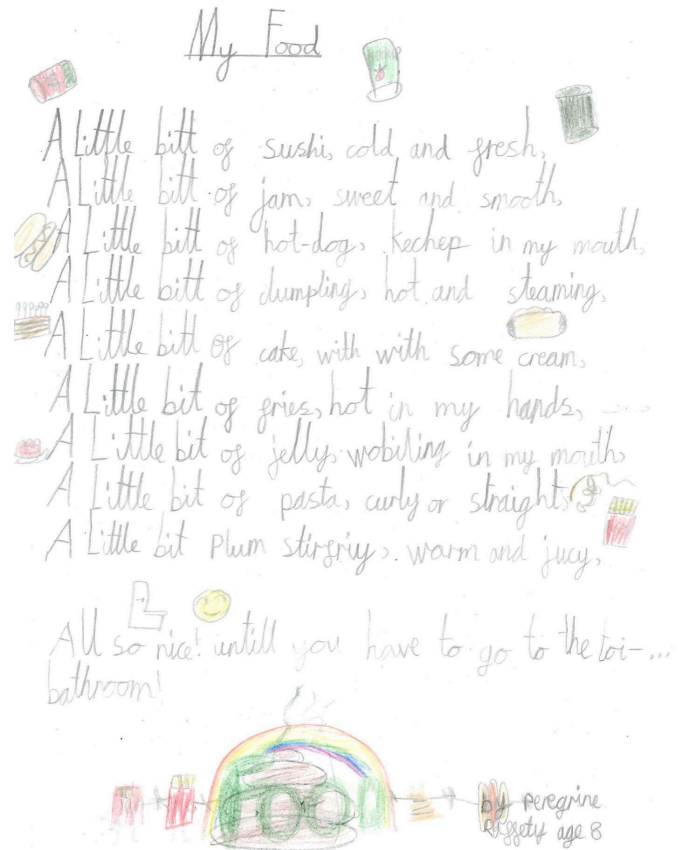 My Food
A Little bitt of sushi, cold and fresh,
A Little bitt of jam, sweet and smooth,
A Little bitt of hot-dog, kechep in my mouth,
A Little bitt of dumpling, hot and steaming,
A Little bitt of cake, with with some cream,
A Little bit of fries, hot in my hands,
A Little bit of jelly, wobiling in my mouth,
A Little bit of pasta, curly or straight,
A Little bit Plum stirfriy, warm and jucy,
All so nice! untill you have to go to the toi-...
bathroom!
FOOD
by Peregrine
Riffety age 8